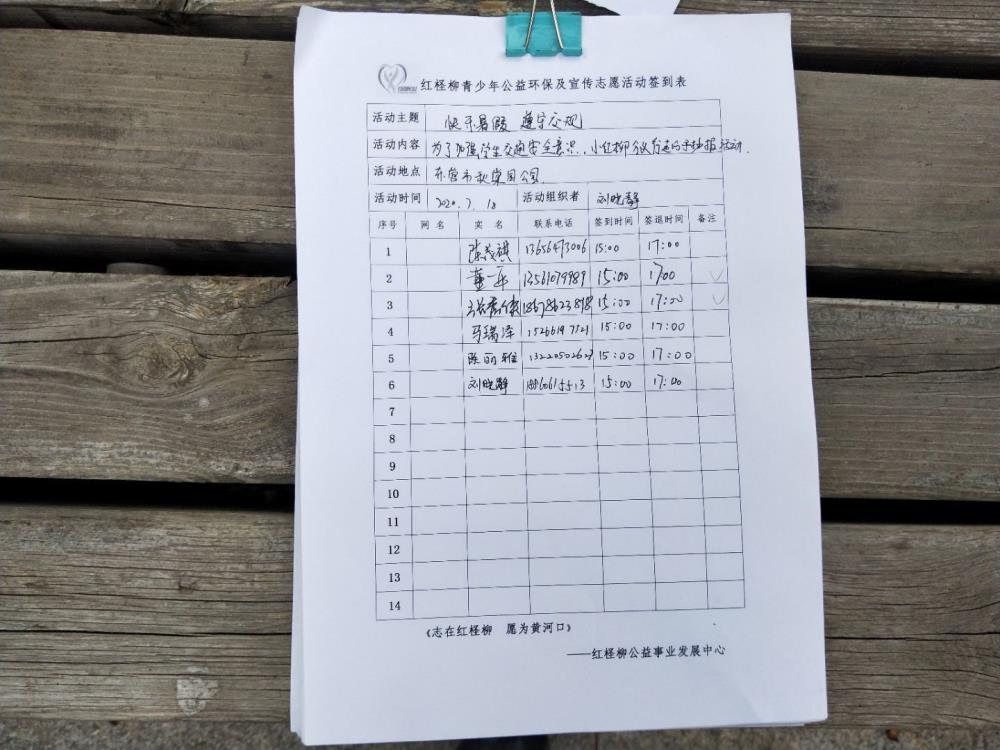 红柽柳青少年公益环保及宣传志愿活动签到表
活动主题 快乐暑假 遵守交规
活动内容 为了加强学生交通安全意识，小红柳 手抄报活动.
活动地点 东营市 公园
活动时间 2020.7.18 活动组织者 刘晓静
序号 网 名 实 名 联系电话 签到时间 签退时间 备注
1 陈茂祺 13656473006 15:00 17:00
2 董一乐 13561079989 15:00 17:00 √
3 15:00 17:00 √
4 马瑞泽 15266197721 15:00 17:00
5 陈丽雅 15:00 17:00
6 刘晓静 15:00 17:00
7
8
9
10
11
12
13
14
《志在红柽柳 愿为黄河口》
——红柽柳公益事业发展中心